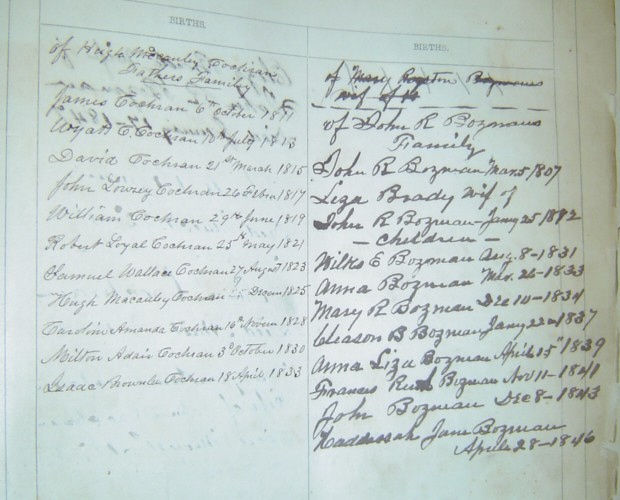 BIRTHS.
of Hugh Mccauley Cochran
Fathers Family
James Cochran 6th October 1811
Wyatt E Cochran 10th July 1813
David Cochran 21st March 1815
John Lowrey Cochran 26 Febin 1817
William Cochran 29th June 1819
Robert Loyal Cochran 25th May 1821
Samuel Wallace Cochran 27 August 1823
Hugh Macauley Cochran Decem 1825
Carolin Amanda Cochran 16th Novem 1828
Milton Adair Cochran 3d October 1830
Isaac Brownlee Cochran 18 April 1833
BIRTHS.
of Mary
wif of
of John R Bozmans
Family
John R Bozman Mar 5 1807
Liza Brady wif of
John R Bozman Jany 25
- children -
Wilks E Bozman Aug. 8-1831
Anna Bozman Mar. 26-1833
Mary R Bozman Dec 10-1834
Gleason B Bozman Jany 22-1837
Anna Liza Bozman April 15" 1839
Frances Bozman Nov 11-1841
John Bozman Dec 8-1843
Haddassah Jane Bozman
April 28-1846